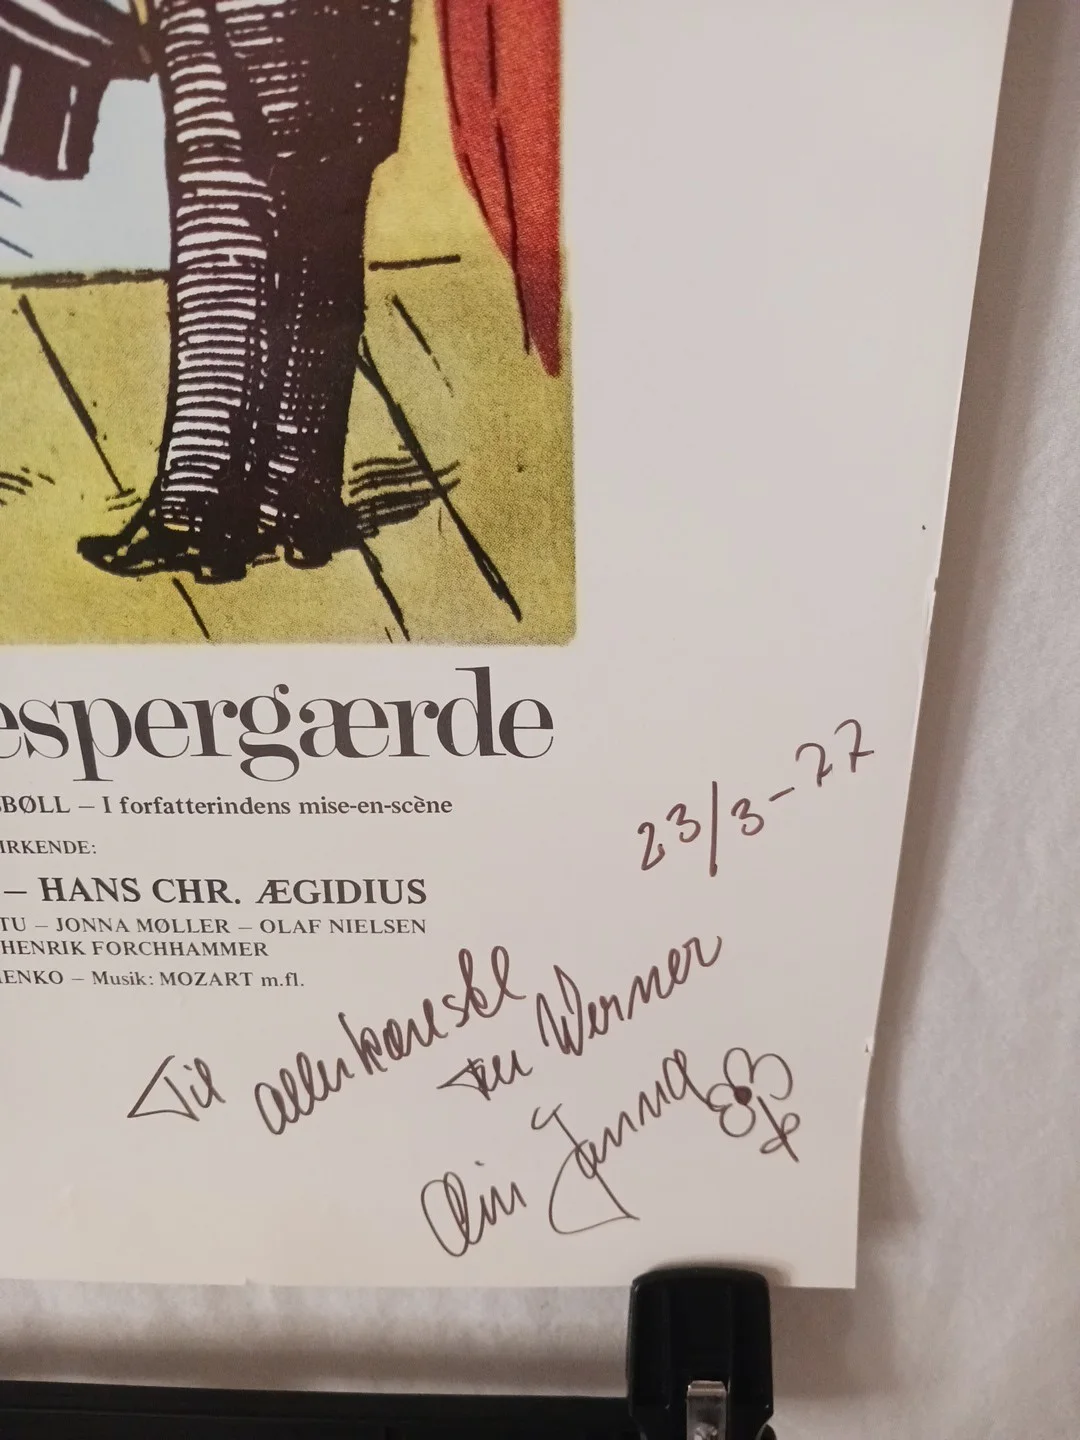 espergærde
BØLL – I forfatterindens mise-en-scène
IRKENDE:
– HANS CHR. ÆGIDIUS
TU – JONNA MØLLER – OLAF NIELSEN
HENRIK FORCHHAMMER
IENKO – Musik: MOZART m.fl.
23/3-77
Til allerkæreste
Werner
Din Jonna